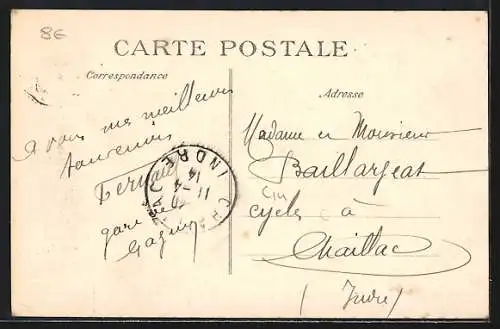 8€
CARTE POSTALE
Correspondance
Adresse
à vous mes meilleurs
souvenirs
Fernand
gare de
Gagny
INDRE
11-4
14
Madame et Monsieur
Baillargeat
cycles à
Chaillac
(Indre)